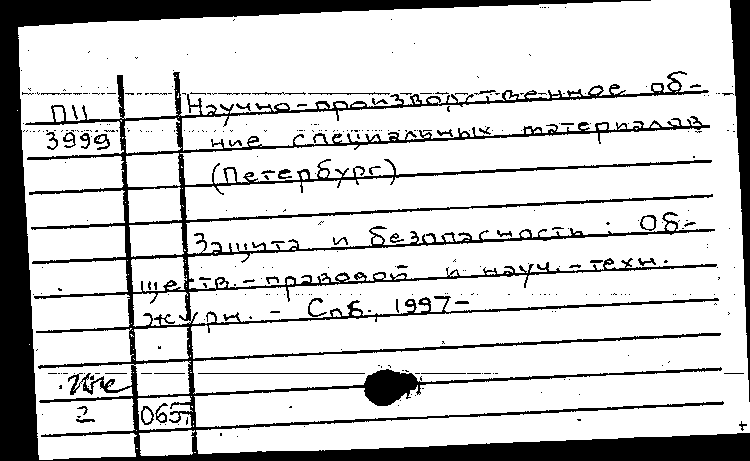 ПЦ Научно-производственное об-
3999 ние специальных материалов
(Петербург)
Защита и безопасность : Об-
ществ.-правовой и науч.-техн.
журн. - Спб., 1997-
2 065,